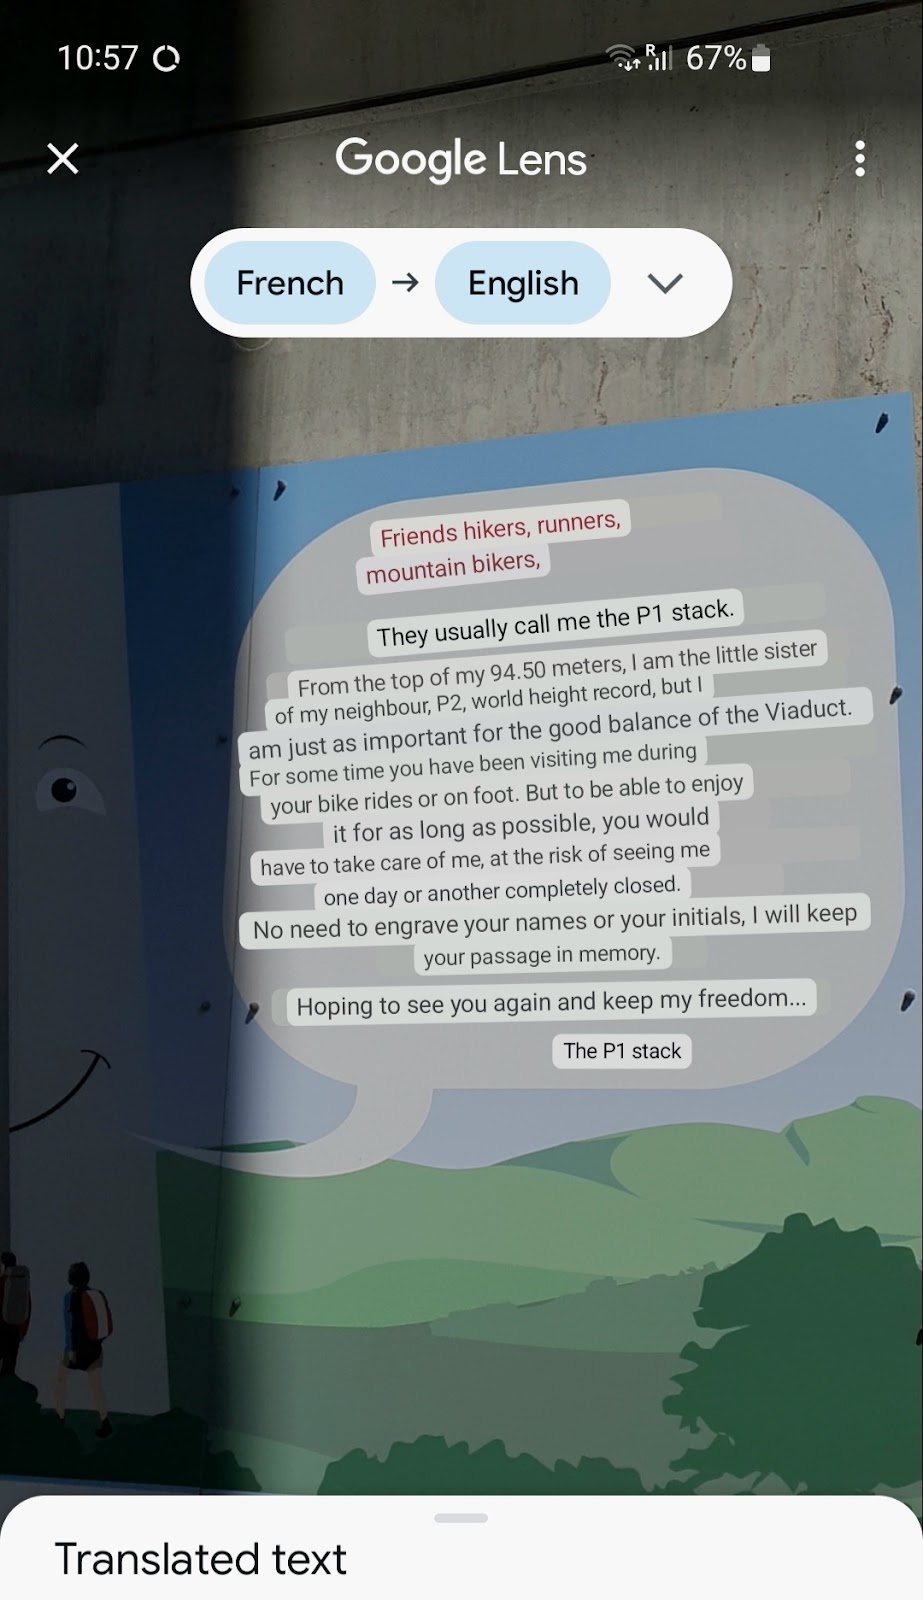 10:57
R 67%
Google Lens
French → English
Friends hikers, runners,
mountain bikers,
They usually call me the P1 stack.
From the top of my 94.50 meters, I am the little sister
of my neighbour, P2, world height record, but I
am just as important for the good balance of the Viaduct.
For some time you have been visiting me during
your bike rides or on foot. But to be able to enjoy
it for as long as possible, you would
have to take care of me, at the risk of seeing me
one day or another completely closed.
No need to engrave your names or your initials, I will keep
your passage in memory.
Hoping to see you again and keep my freedom...
The P1 stack
Translated text